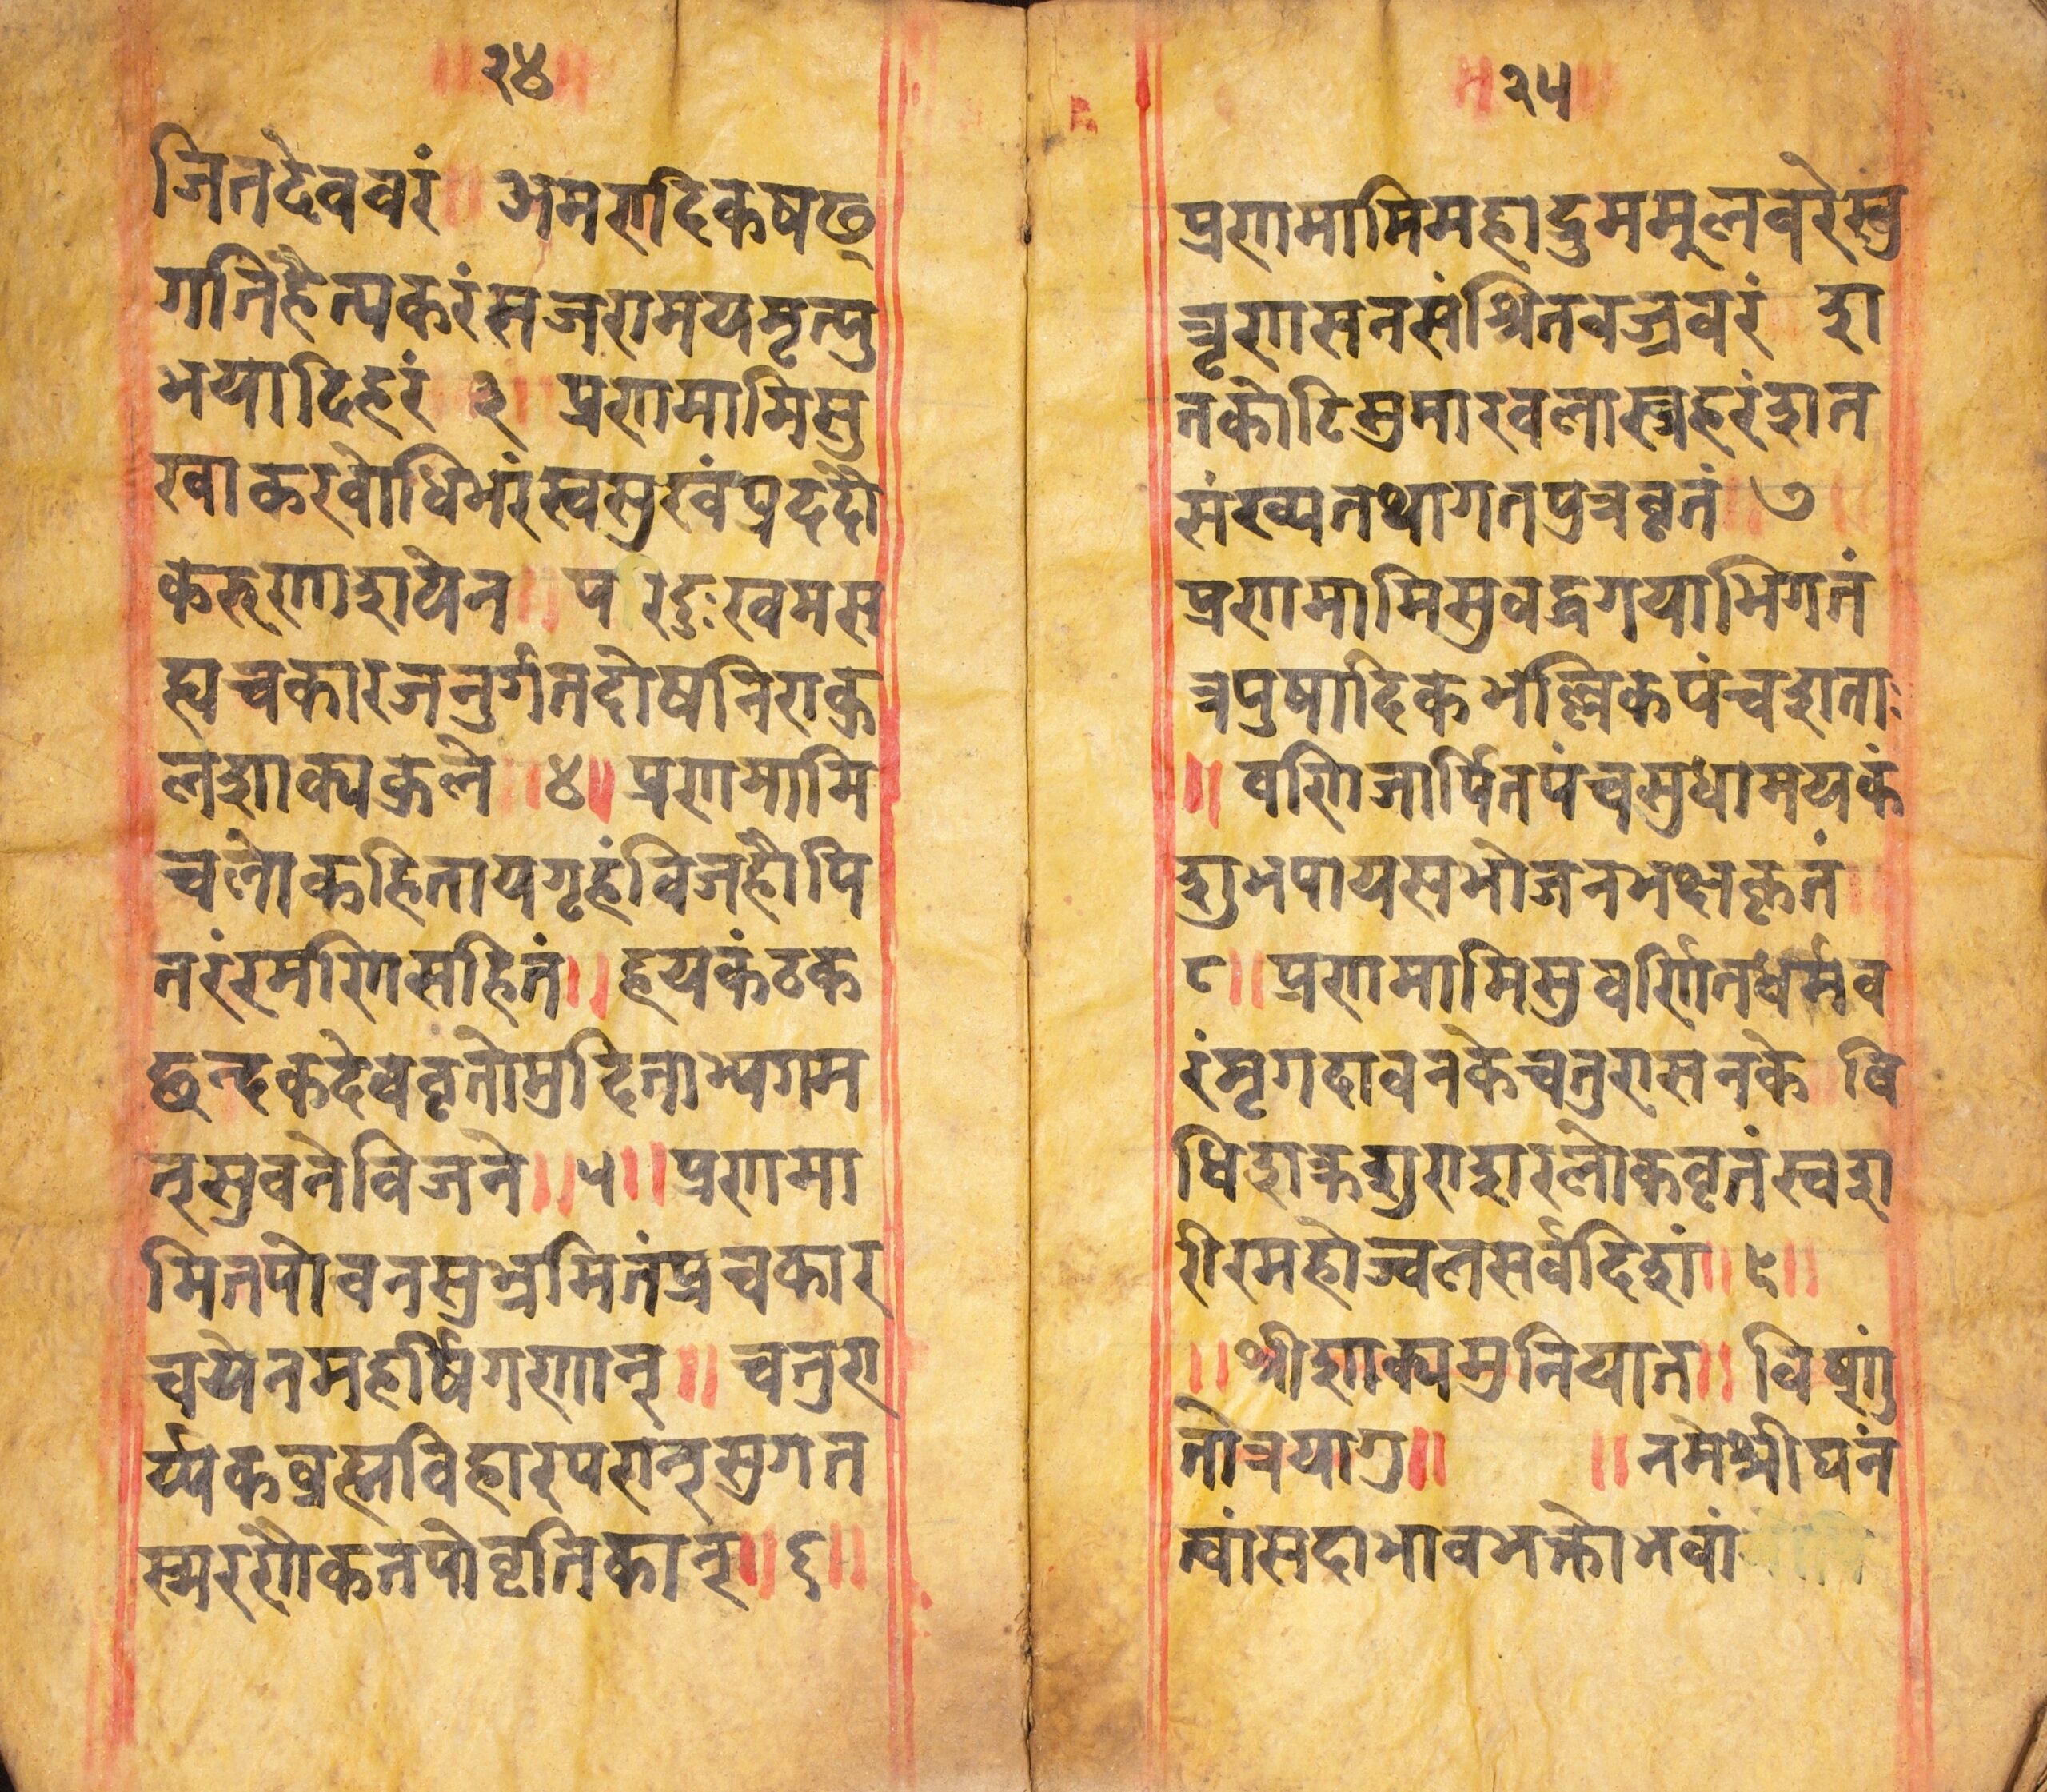 ॥ २४ ॥
जितदेववरं ॥ अमरादिकषछ्
गतिहैत्यकरंसजरामयमृत्यु
भयादिहरं ३ ॥ प्रणमामिसु
खाकरवोधिभरंस्वसुखंप्रददौ
करुणाशयेन ॥ परिदुःखमस
ह्यचकारजनुर्गतदोषनिराक्र
लशाक्यक्रले ॥ ४ ॥ प्रणमामि
चलोकहितायगृहंविजहौपि
तरंरमणिसहितं ॥ हयकंठक
छन्दकदेववृतोम्रदिताभ्यगम
त्सुवनेविजने ॥ ५ ॥ प्रणमा
मितपोवनसुभ्रमितंप्रचकार
चयेनमहर्षिगणान् ॥ चतुरा
र्य्यकब्रह्मविहारपरान्सुगत
स्मरणैकतपोवृतिकान् ॥ ६ ॥
॥ २५ ॥
प्रणमामिमहाद्रुममूलवरेस्तु
तृणासनसंश्रितवज्रवरं शा
तकोटिसुमारवलास्त्रहरंशत
संख्यतथागतप्रत्रवृतं ॥ ७ ॥
प्रणमामिसुवद्धगयाभिगतं
त्रपुषादिकभल्लिकपंचशताः
॥ वणिजार्पितपंचसुधामयकं
शुभपायसभोजनभक्षकृतं ॥
८ ॥ प्रणमामिसुवर्णितधर्मव
रंमृगदावनकेचतुरासनके वि
धिशक्रशुराशरलोकवृतंस्वश
रीरमहोज्वलसर्वदिशां ॥ ९ ॥
॥ श्रीशाक्यमुनियात ॥ विष्णुं
तोत्रयागु ॥ ॥ नमेश्रीघनं
त्वांसदाभावभक्तोभवां